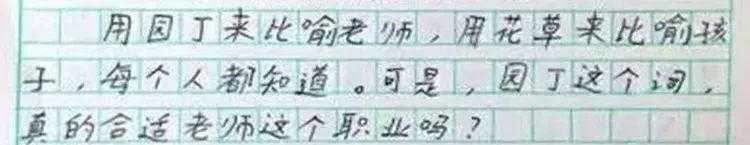 用园丁来比喻老师，用花草来比喻孩
子，每个人都知道。可是，园丁这个词，
真的合适老师这个职业吗？